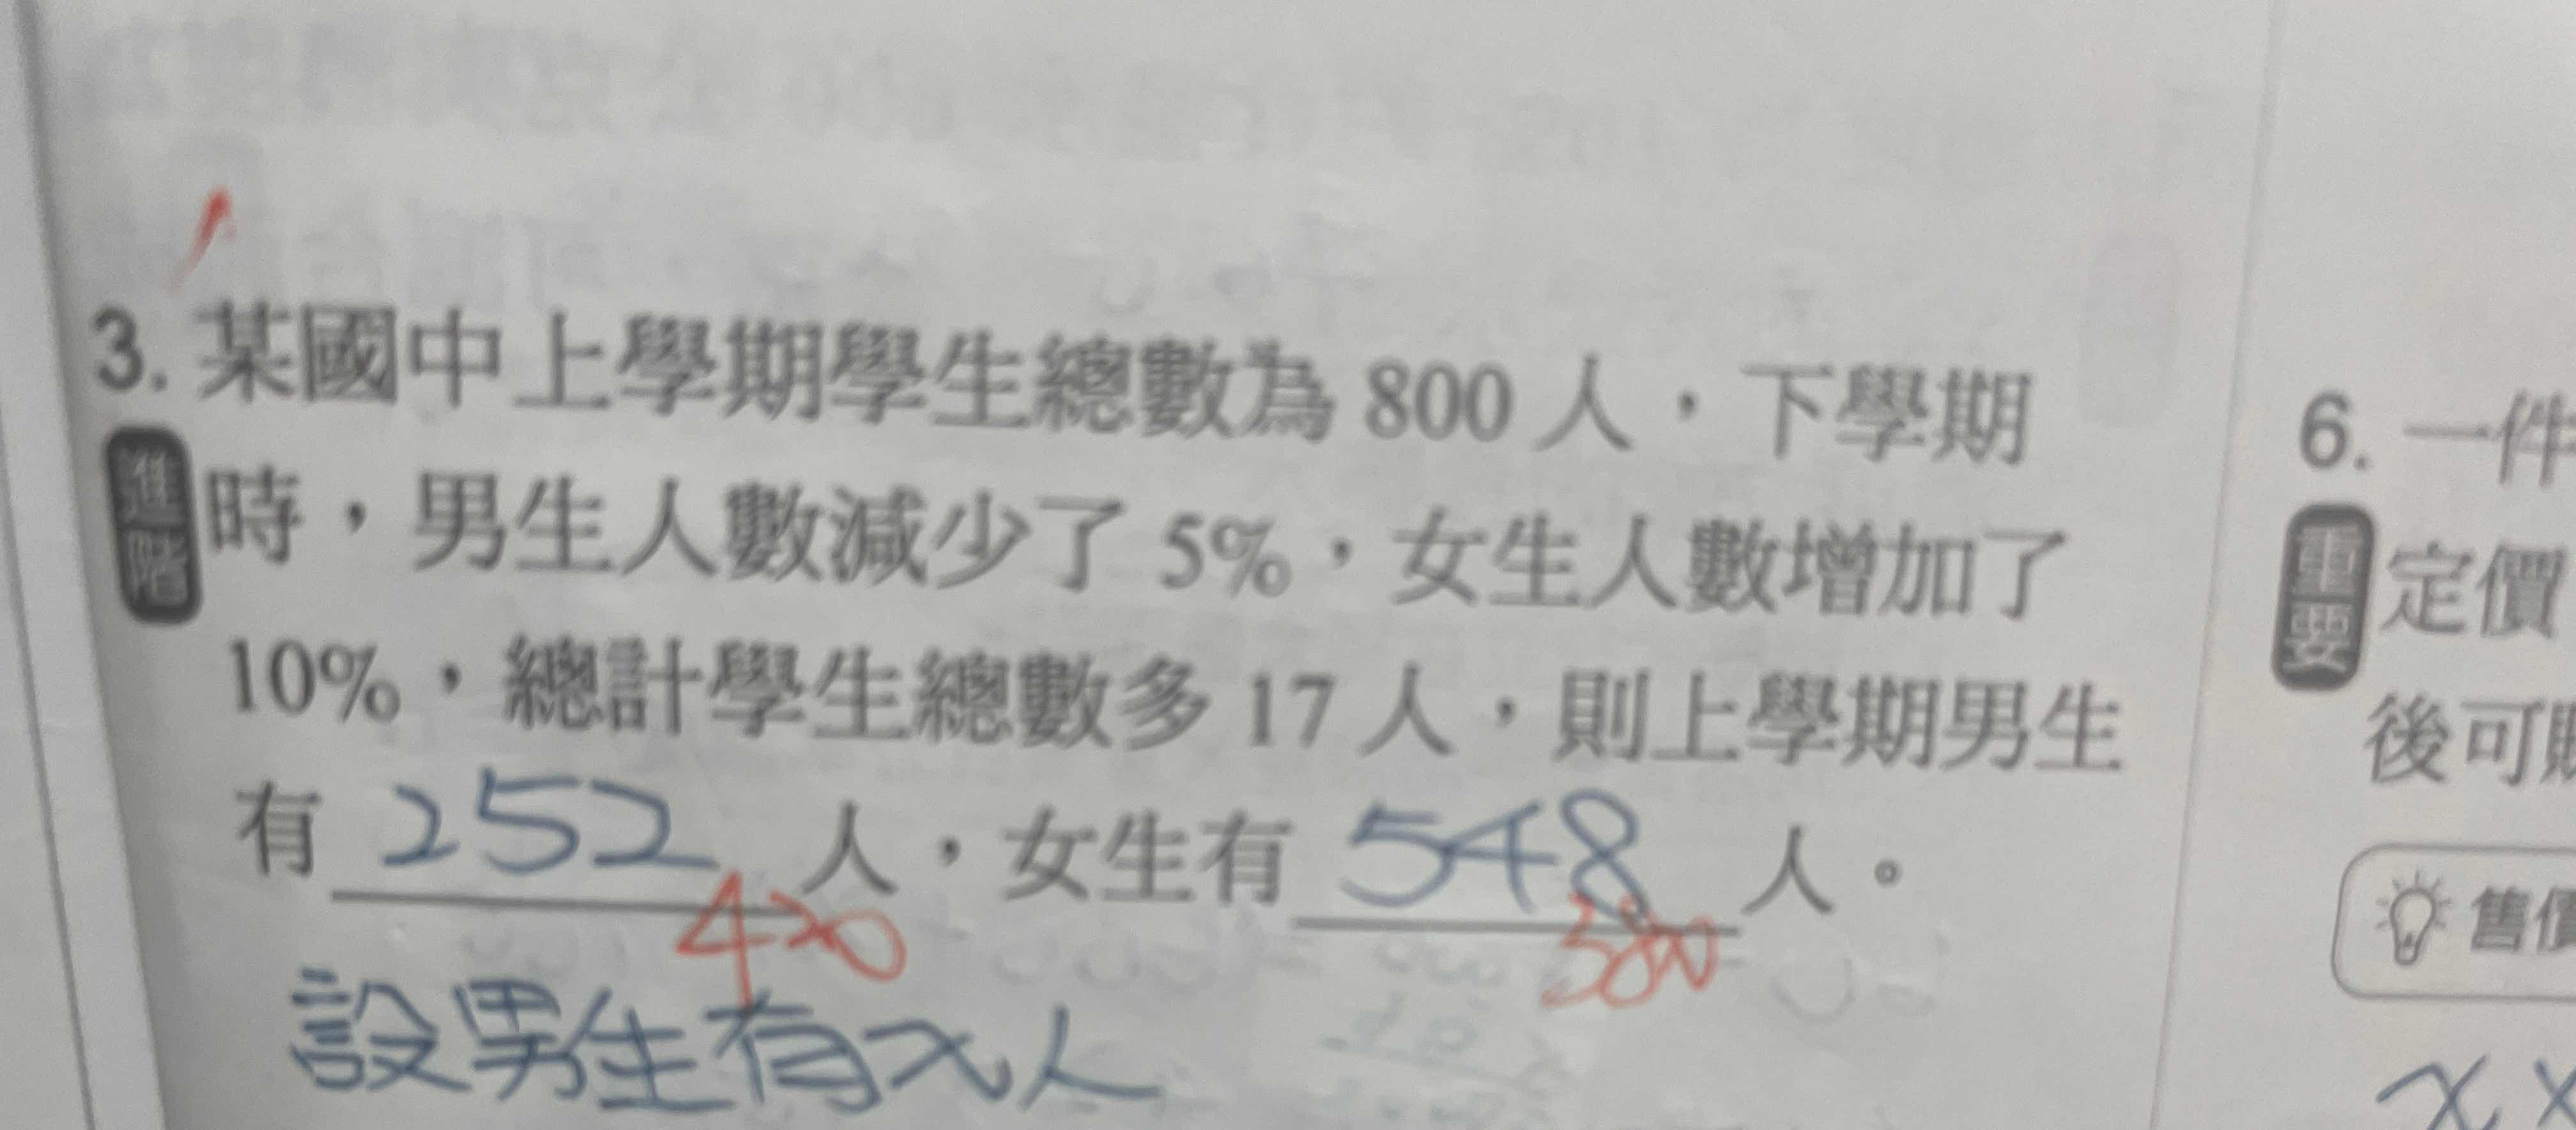 3. 某國中上學期學生總數為 800 人，下學期
進階
時，男生人數減少了 5%，女生人數增加了
10%，總計學生總數多 17 人，則上學期男生
有 252 人，女生有 548 人。
420 380
設男生有x人
6. 一件
重要
定價
後可
售價
x x